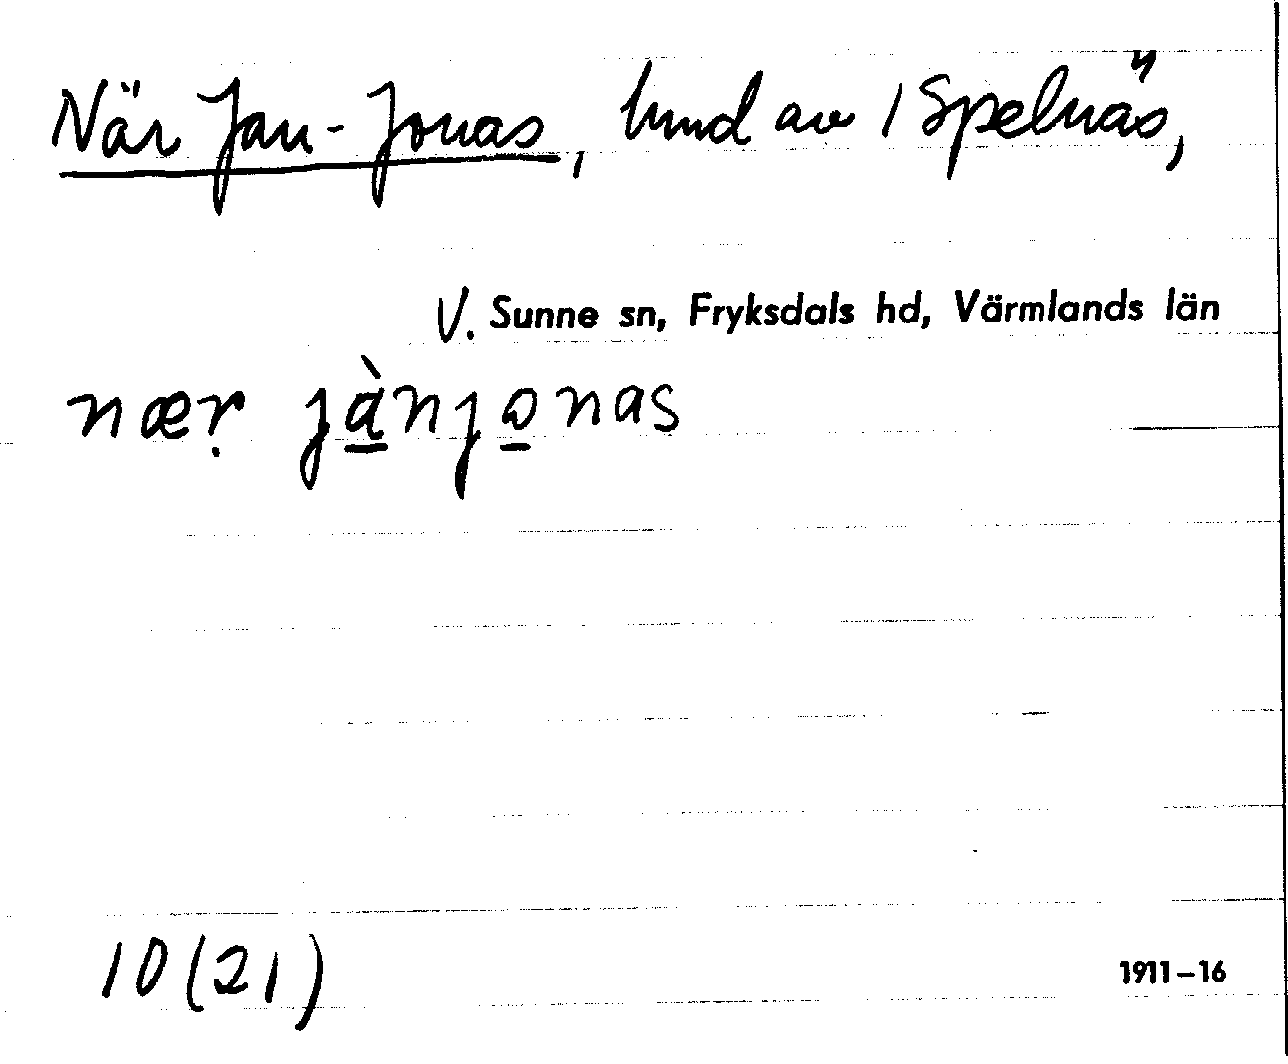 När Jan-Jonas, hmd av 1 Spelnäs,
V. Sunne sn, Fryksdals hd, Värmlands län
nær̤ jànjonas
10 (21)
1911–16